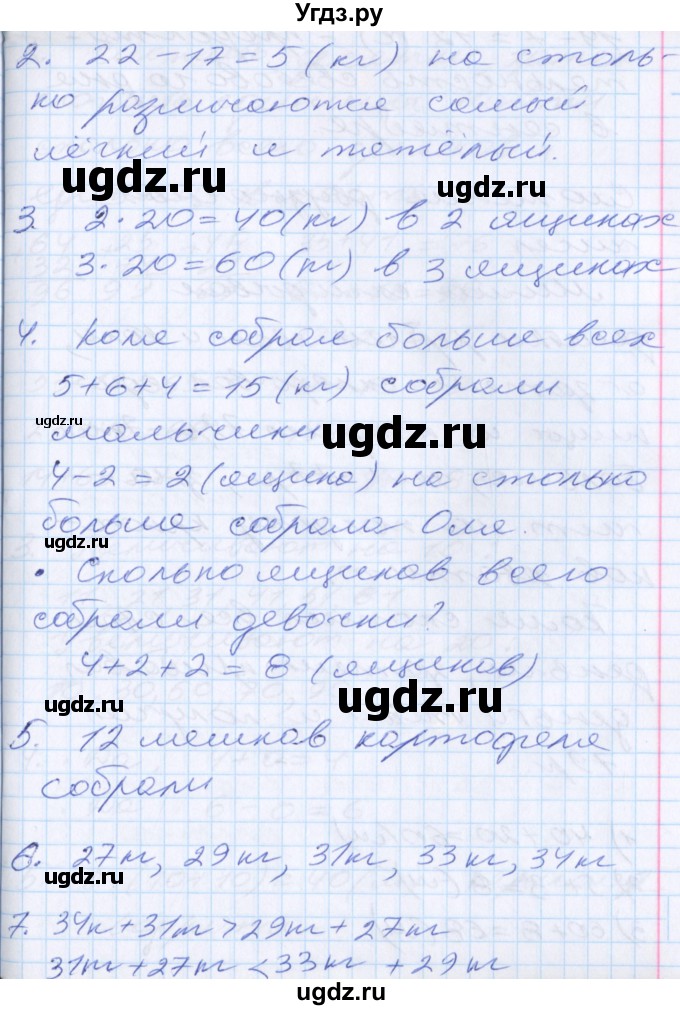 Угдз.ру
2. 22 – 17 = 5 (кг) на столь-
ко различаются самый
лёгкий и тяжёлый.
ugdz.ru ugdz.ru
3. 2·20=40(кг) в 2 ящиках
3·20=60(кг) в 3 ящиках
4. Коле собрал больше всех
5+6+4=15(кг) собрали
ugdz.ru
мальчики ugdz.ru
4–2=2(ящика) на столько
больше собрала Оля.
ugdz.ru
• Сколько ящиков всего
собрали девочки?
4+2+2=8 (ящиков)
ugdz.ru ugdz.ru
5. 12 мешков картофеля
собрали
6. 27кг, 29кг, 31кг, 33кг, 34кг
ugdz.ru
7. 34к+31кг>29кг+27кг
31кг+27кг<33кг +29кг
ugdz.ru
ugdz.ru